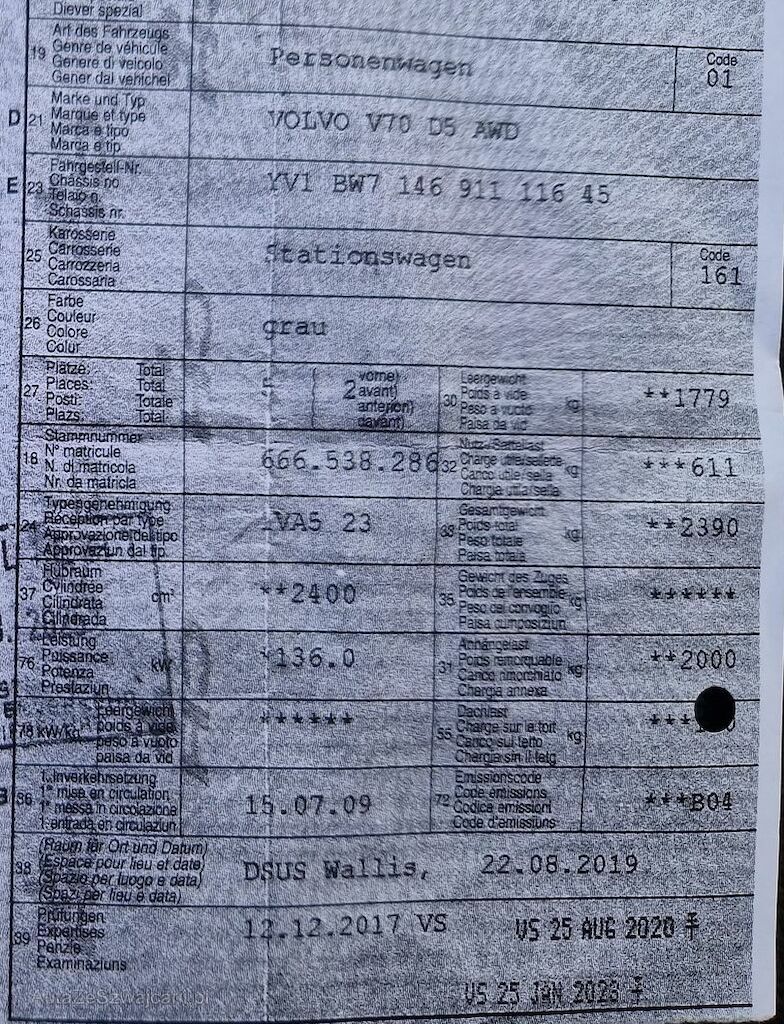 Diever spezial
Art des Fahrzeugs
19 Genre de véhicule
Genere di veicolo
Gener dal vehichel
Personenwagen
Code
01
Marke und Typ
D 21 Marque et type
Marca e tipo
Marca e tip
VOLVO V70 D5 AWD
Fahrgestell-Nr.
E 23 Châssis no
Telaio n.
Schassis nr.
YV1 BW7 146 911 116 45
Karosserie
25 Carrosserie
Carrozzeria
Carossaria
Stationswagen
Code
161
Farbe
26 Couleur
Colore
Colur
grau
Plätze: Total
27 Places: Total
Posti: Totale
Plazs: Total
5 ( 2 vorne)
avant)
anteriori)
davant)
Leergewicht
30 Poids à vide kg
Peso a vuoto
Paisa da vid
**1779
Stammnummer
18 N° matricule
N. di matricola
Nr. da matricla
666.538.286
32 Charge utile/sellette kg
***611
Typengenehmigung
24 Réception par type
Approvazione del tipo
Approvaziun dal tip
1VA5 23
Gesamtgewicht
33 Poids total kg
Peso totale
Paisa totala
**2390
Hubraum
37 Cylindrée cm³
Cilindrata
**2400
Gewicht des Zuges
35 Poids de l'ensemble kg
Peso del convoglio
Paisa cumposiziun
******
Leistung
76 Puissance kW
Potenza
Prestaziun
*136.0
Anhängelast
31 Poids remorquable kg
Carico rimorchiato
Chargia annexa
**2000
Leergewicht
78 kW/kg poids à vide
peso a vuoto
paisa da vid
******
Dachlast
55 Charge sur le toit kg
Carico sul tetto
Chargia sin il tetg
1. Inverkehrsetzung
36 1re mise en circulation
1a messa in circolazione
1. entrada en circulaziun
15.07.09
Emissionscode
72 Code émissions
Codice emissioni
Code d'emissiuns
***B04
(Raum für Ort und Datum)
38 (Espace pour lieu et date)
(Spazio per luogo e data)
(Spazi per lieu e data)
DSUS Wallis, 22.08.2019
Prüfungen
39 Expertises
Examinaziuns
12.12.2017 VS
US 25 AUG 2020
US 25 JAN 2023
AutazeSzwajcarii.pl